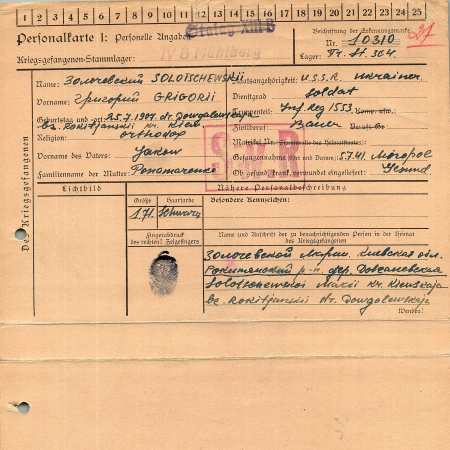 1 2 3 4 5 6 7 8 9 10 11 12 13 14 15 16 17 18 19 20 21 22 23 24 25
Personalkarte I: Personelle Angaben
Kriegsgefangenen-Stammlager:
Stalag XIII B
IV B Mühlberg
Beschriftung der Erkennungsmarke
Nr. 10310
Lager: St. 304
21
Des Kriegsgefangenen
Name: Золочевский SOLOTSCHEWSKII
Vorname: Григорий GRIGORII
Geburtstag und -ort: 25.7.1907. dr. Dowgalewskaja
bz. Rokitjanskii kr. Kiew
Religion: orthodox
Vorname des Vaters: Jakow
Familienname der Mutter: Ponamarenko
Staatsangehörigkeit: U.S.S.R. Ukrainer
Dienstgrad: Soldat
Truppenteil: Inf. Reg 1553 Komp. usw.:
Zivilberuf: Bauer Berufs-Gr.:
Matrikel Nr. (Stammrolle des Heimatstaates):
Gefangennahme (Ort und Datum): 5.7.41
Ob gesund, krank, verwundet eingeliefert: Gesund
SUR
Lichtbild
Nähere Personalbeschreibung
Größe
Haarfarbe
Besondere Kennzeichen:
171. Schwarz
Fingerabdruck
des rechten! Zeigefingers
Name und Anschrift der zu benachrichtigenden Person in der Heimat
des Kriegsgefangenen
Золочевской Киевская обл.
р-н. дер. Довгалевская
kr. Kiewskaja
bz. Rokitjanskii dr. Dowgalewskaja
Wenden!